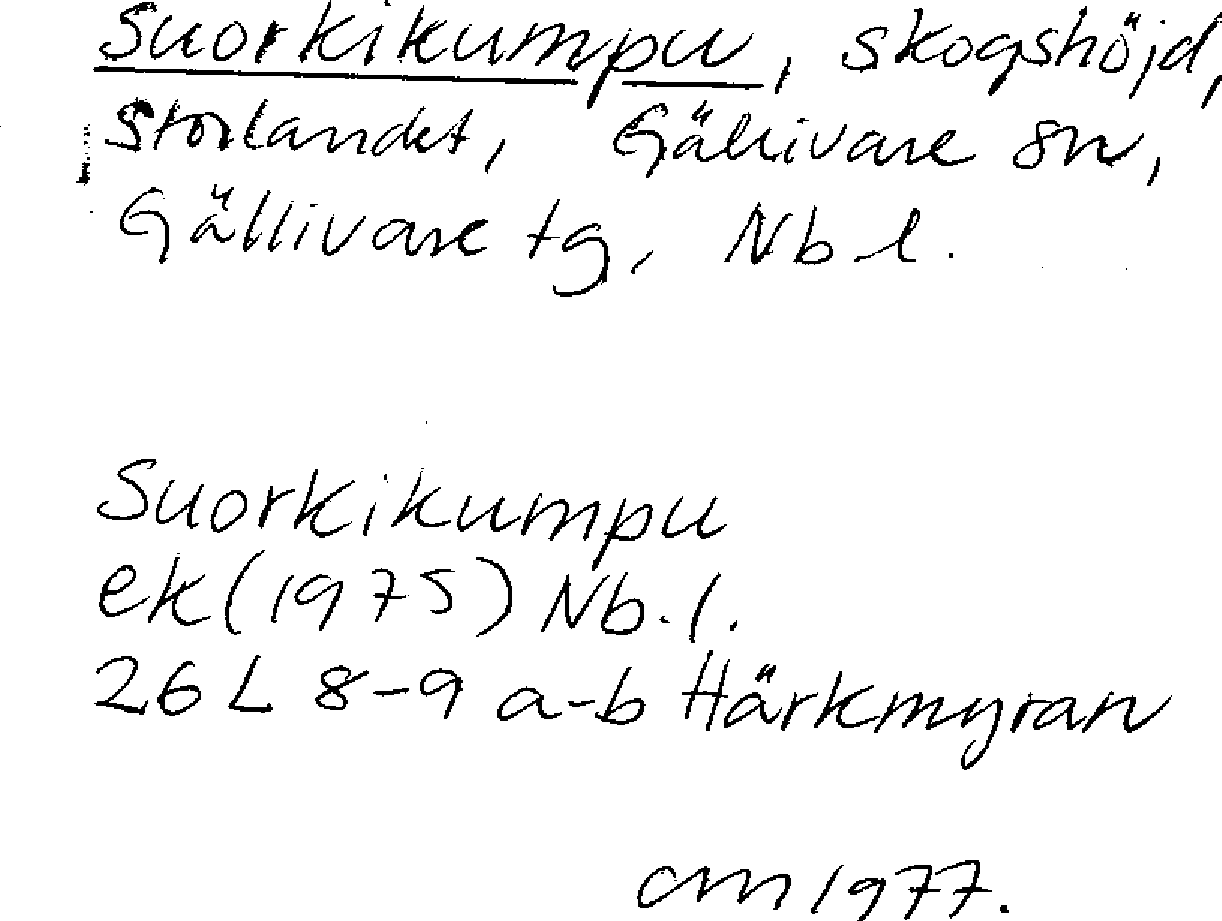 Suorkikumpu, skogshöjd,
Storlandet, Gällivare sn,
Gällivare tg, Nb l.
Suorkikumpu
ek (1975) Nb. l.
26 L 8-9 a-b Härkmyran
CM 1977.